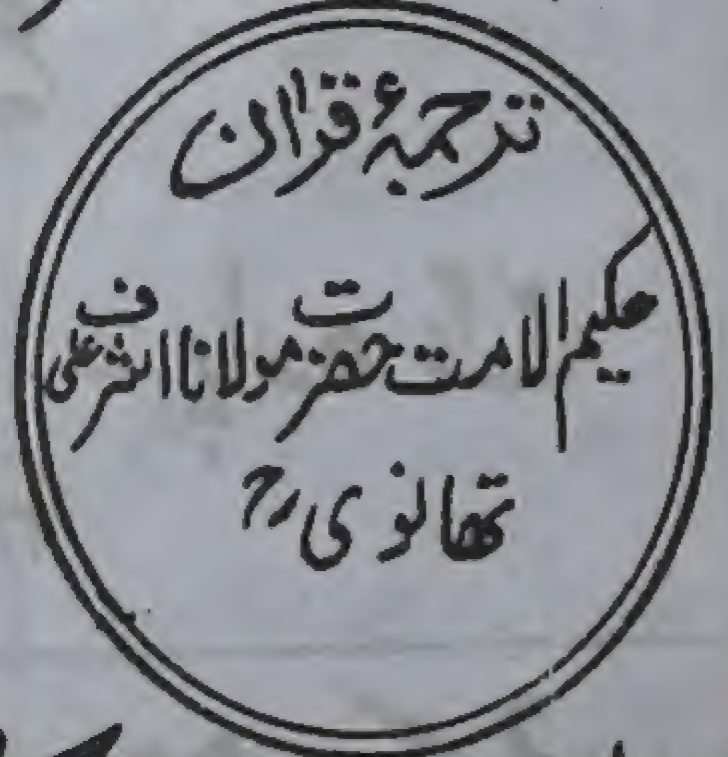 ترجمۂ قرآن
حکیم الامت حضرت مولانا اشرف علی
تھانوی رح